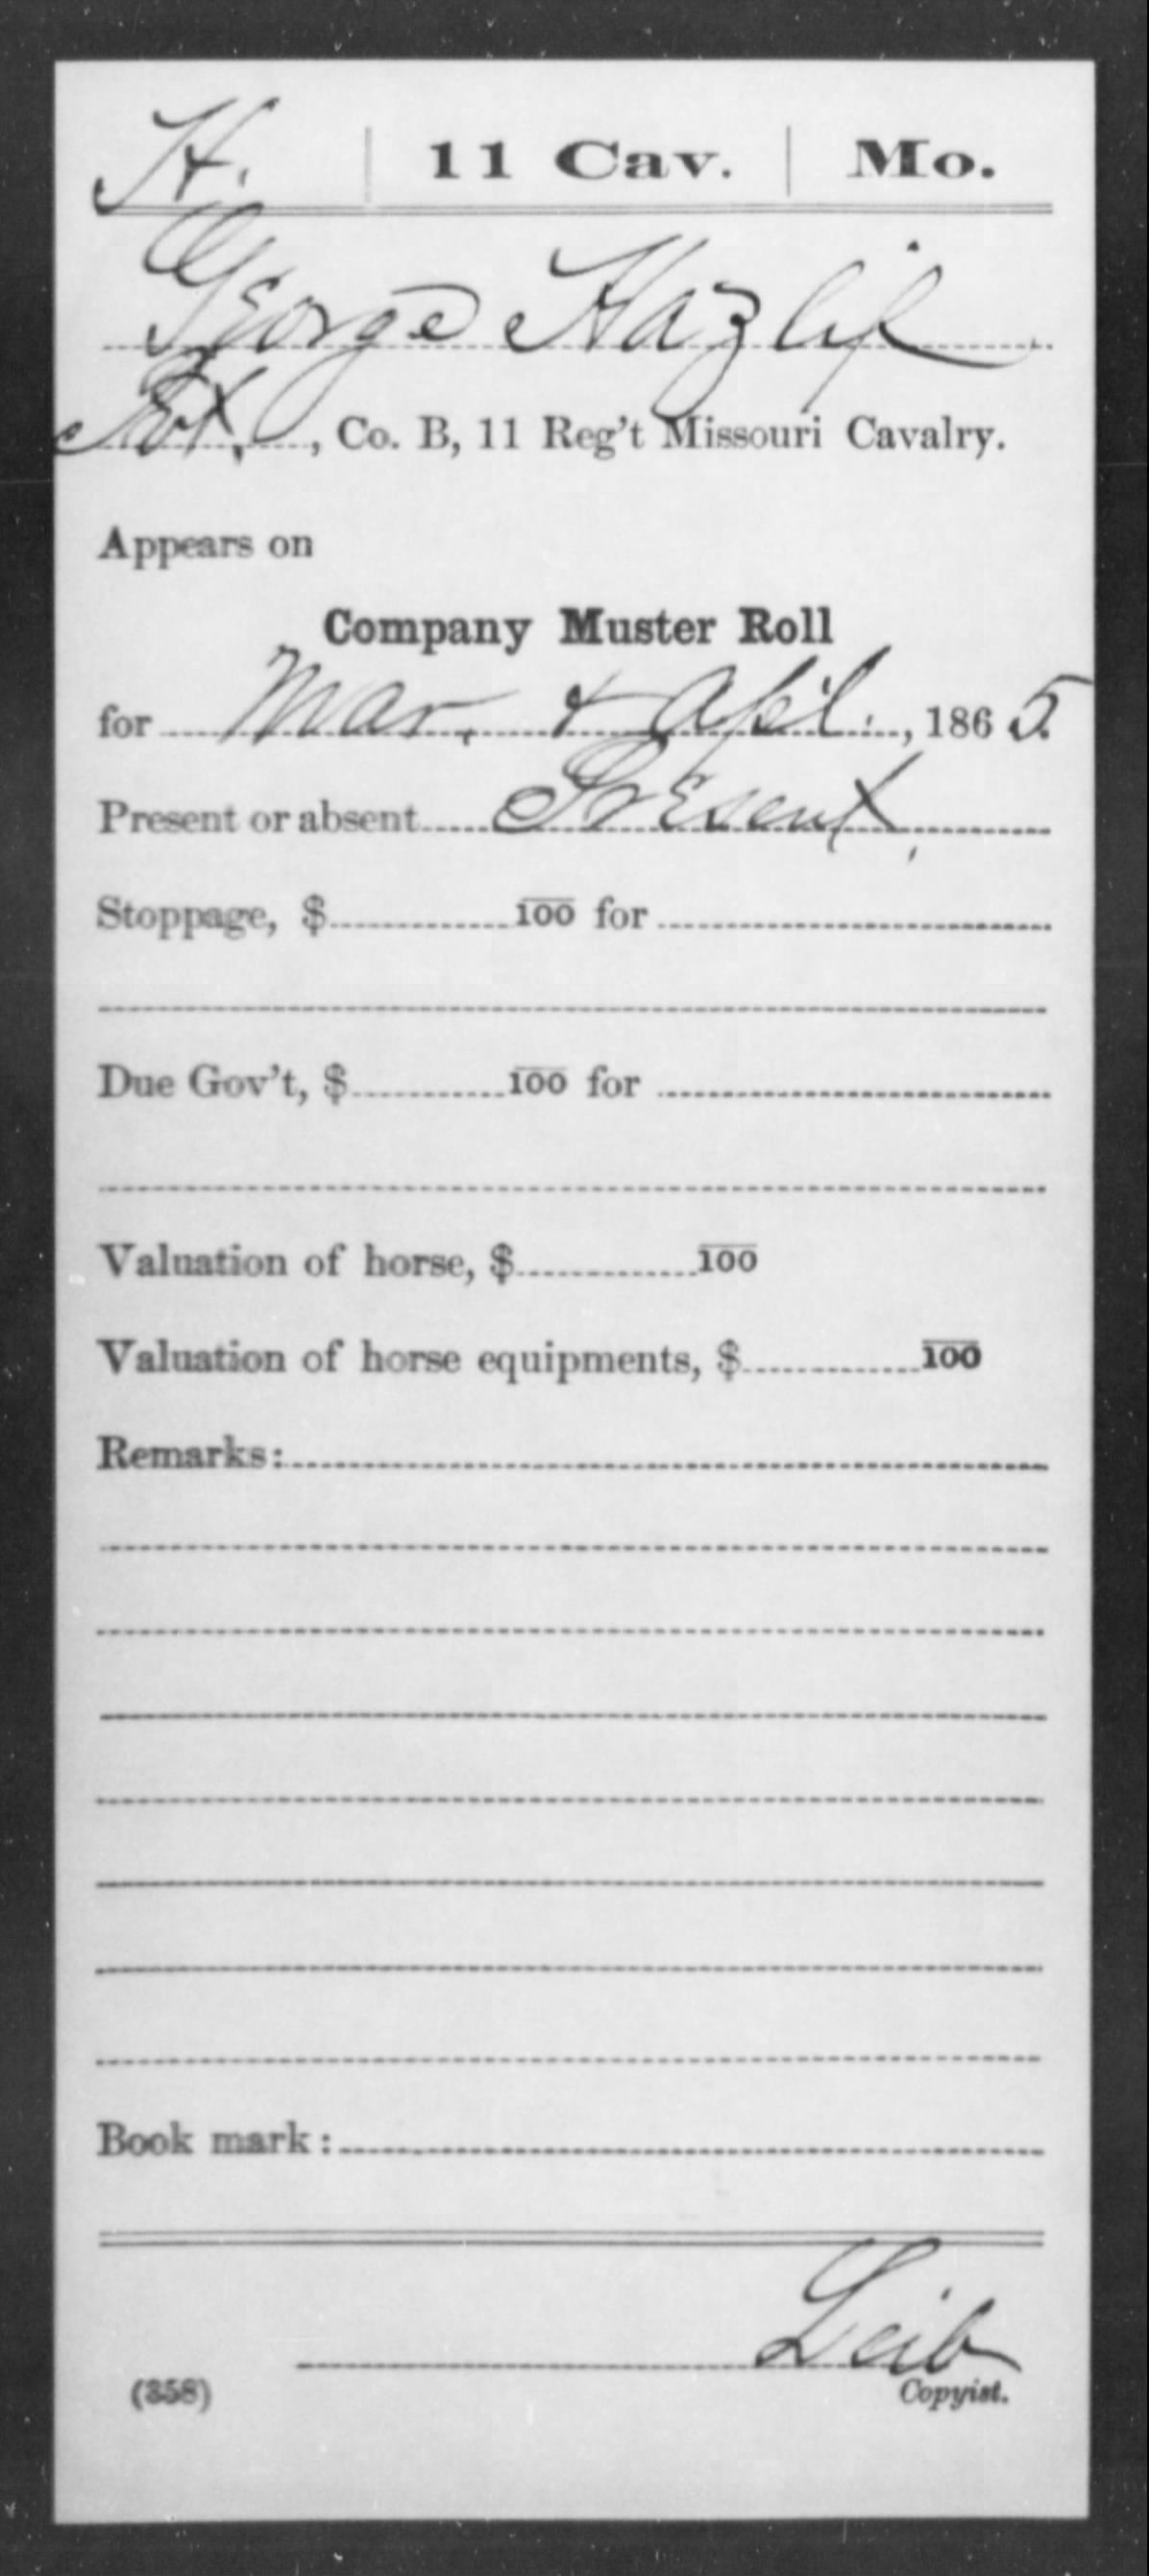 H. | 11 Cav. | Mo.
George Hazlip
Pvt., Co. B, 11 Reg't Missouri Cavalry.
Appears on
Company Muster Roll
for Mar. & Apl., 1865.
Present or absent Present
Stoppage, $ 100 for
Due Gov't, $ 100 for
Valuation of horse, $ 100
Valuation of horse equipments, $ 100
Remarks:
Book mark:
Leib
(358) Copyist.